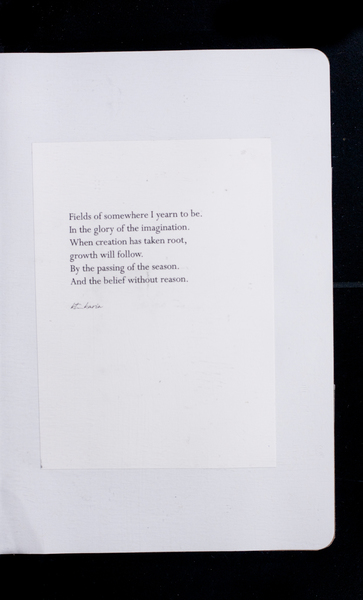 Fields of somewhere I yearn to be.
In the glory of the imagination.
When creation has taken root,
growth will follow.
By the passing of the season.
And the belief without reason.